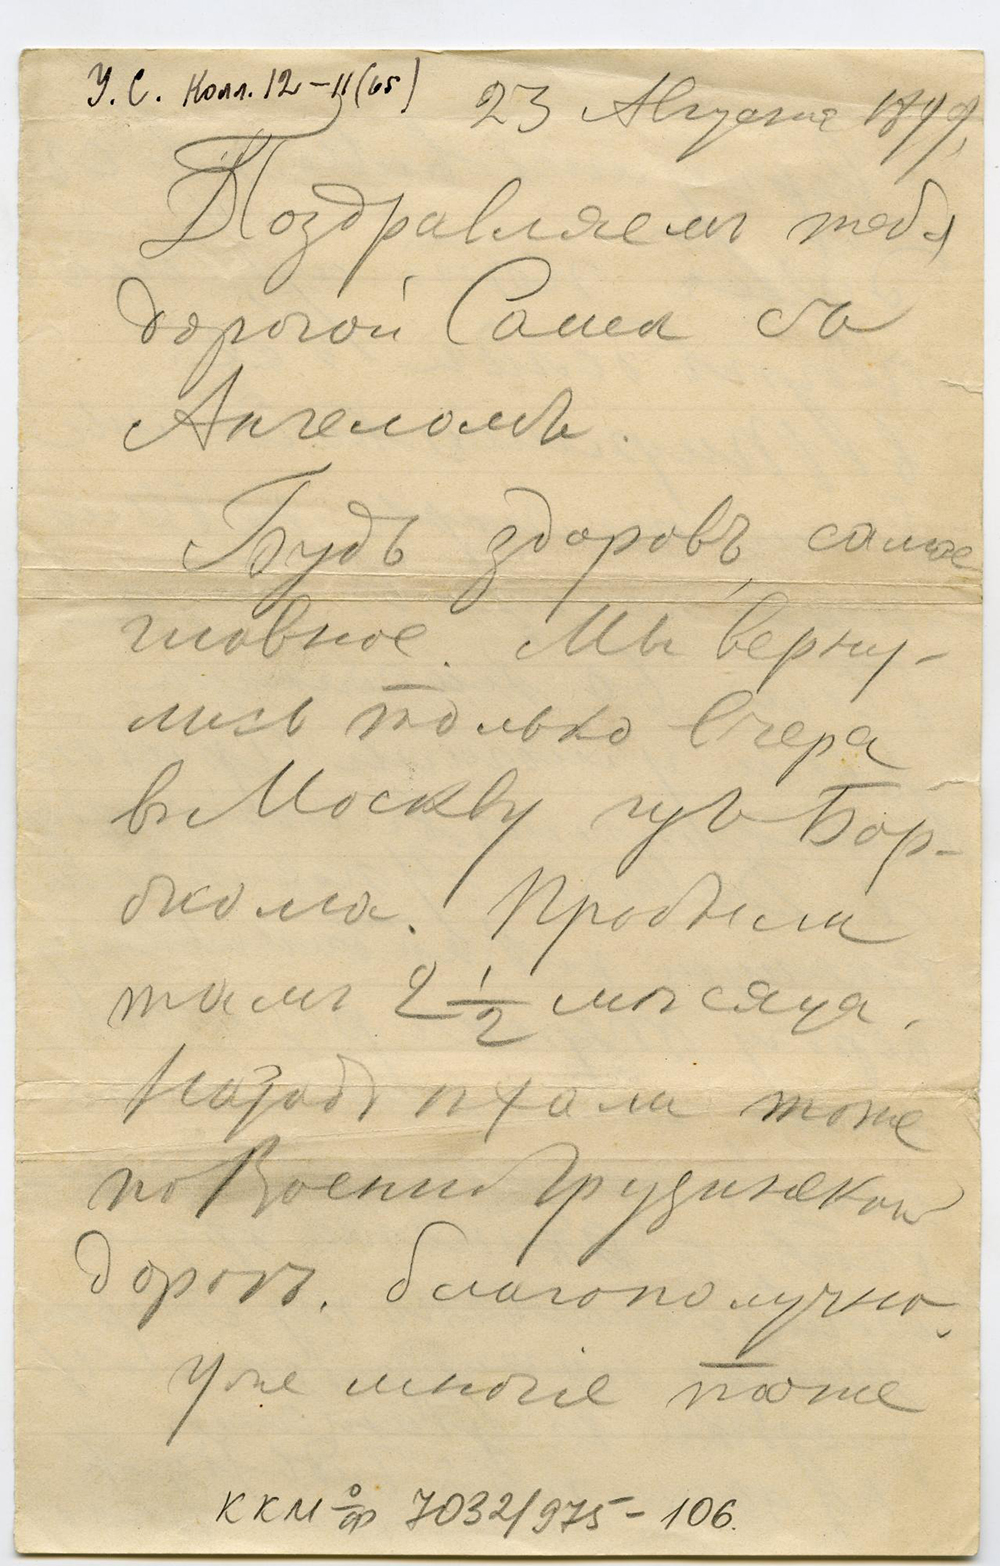 У.С. Колл. 12-11(65)
23 Августа 1899,
Поздравляемъ тебя
дорогой Саша съ
Ангеломъ.
Будь здоровъ, самое
главное. Мы верну-
лись только вчера
въ Москву изъ Бор-
жома. Пробыли
тамъ 2 1/2 мѣсяца.
Назадъ ѣхали тоже
по Военно Грузинской
дорогѣ. благополучно.
Уже многіе тоже
ККМ О/Ф 7032/975-106.